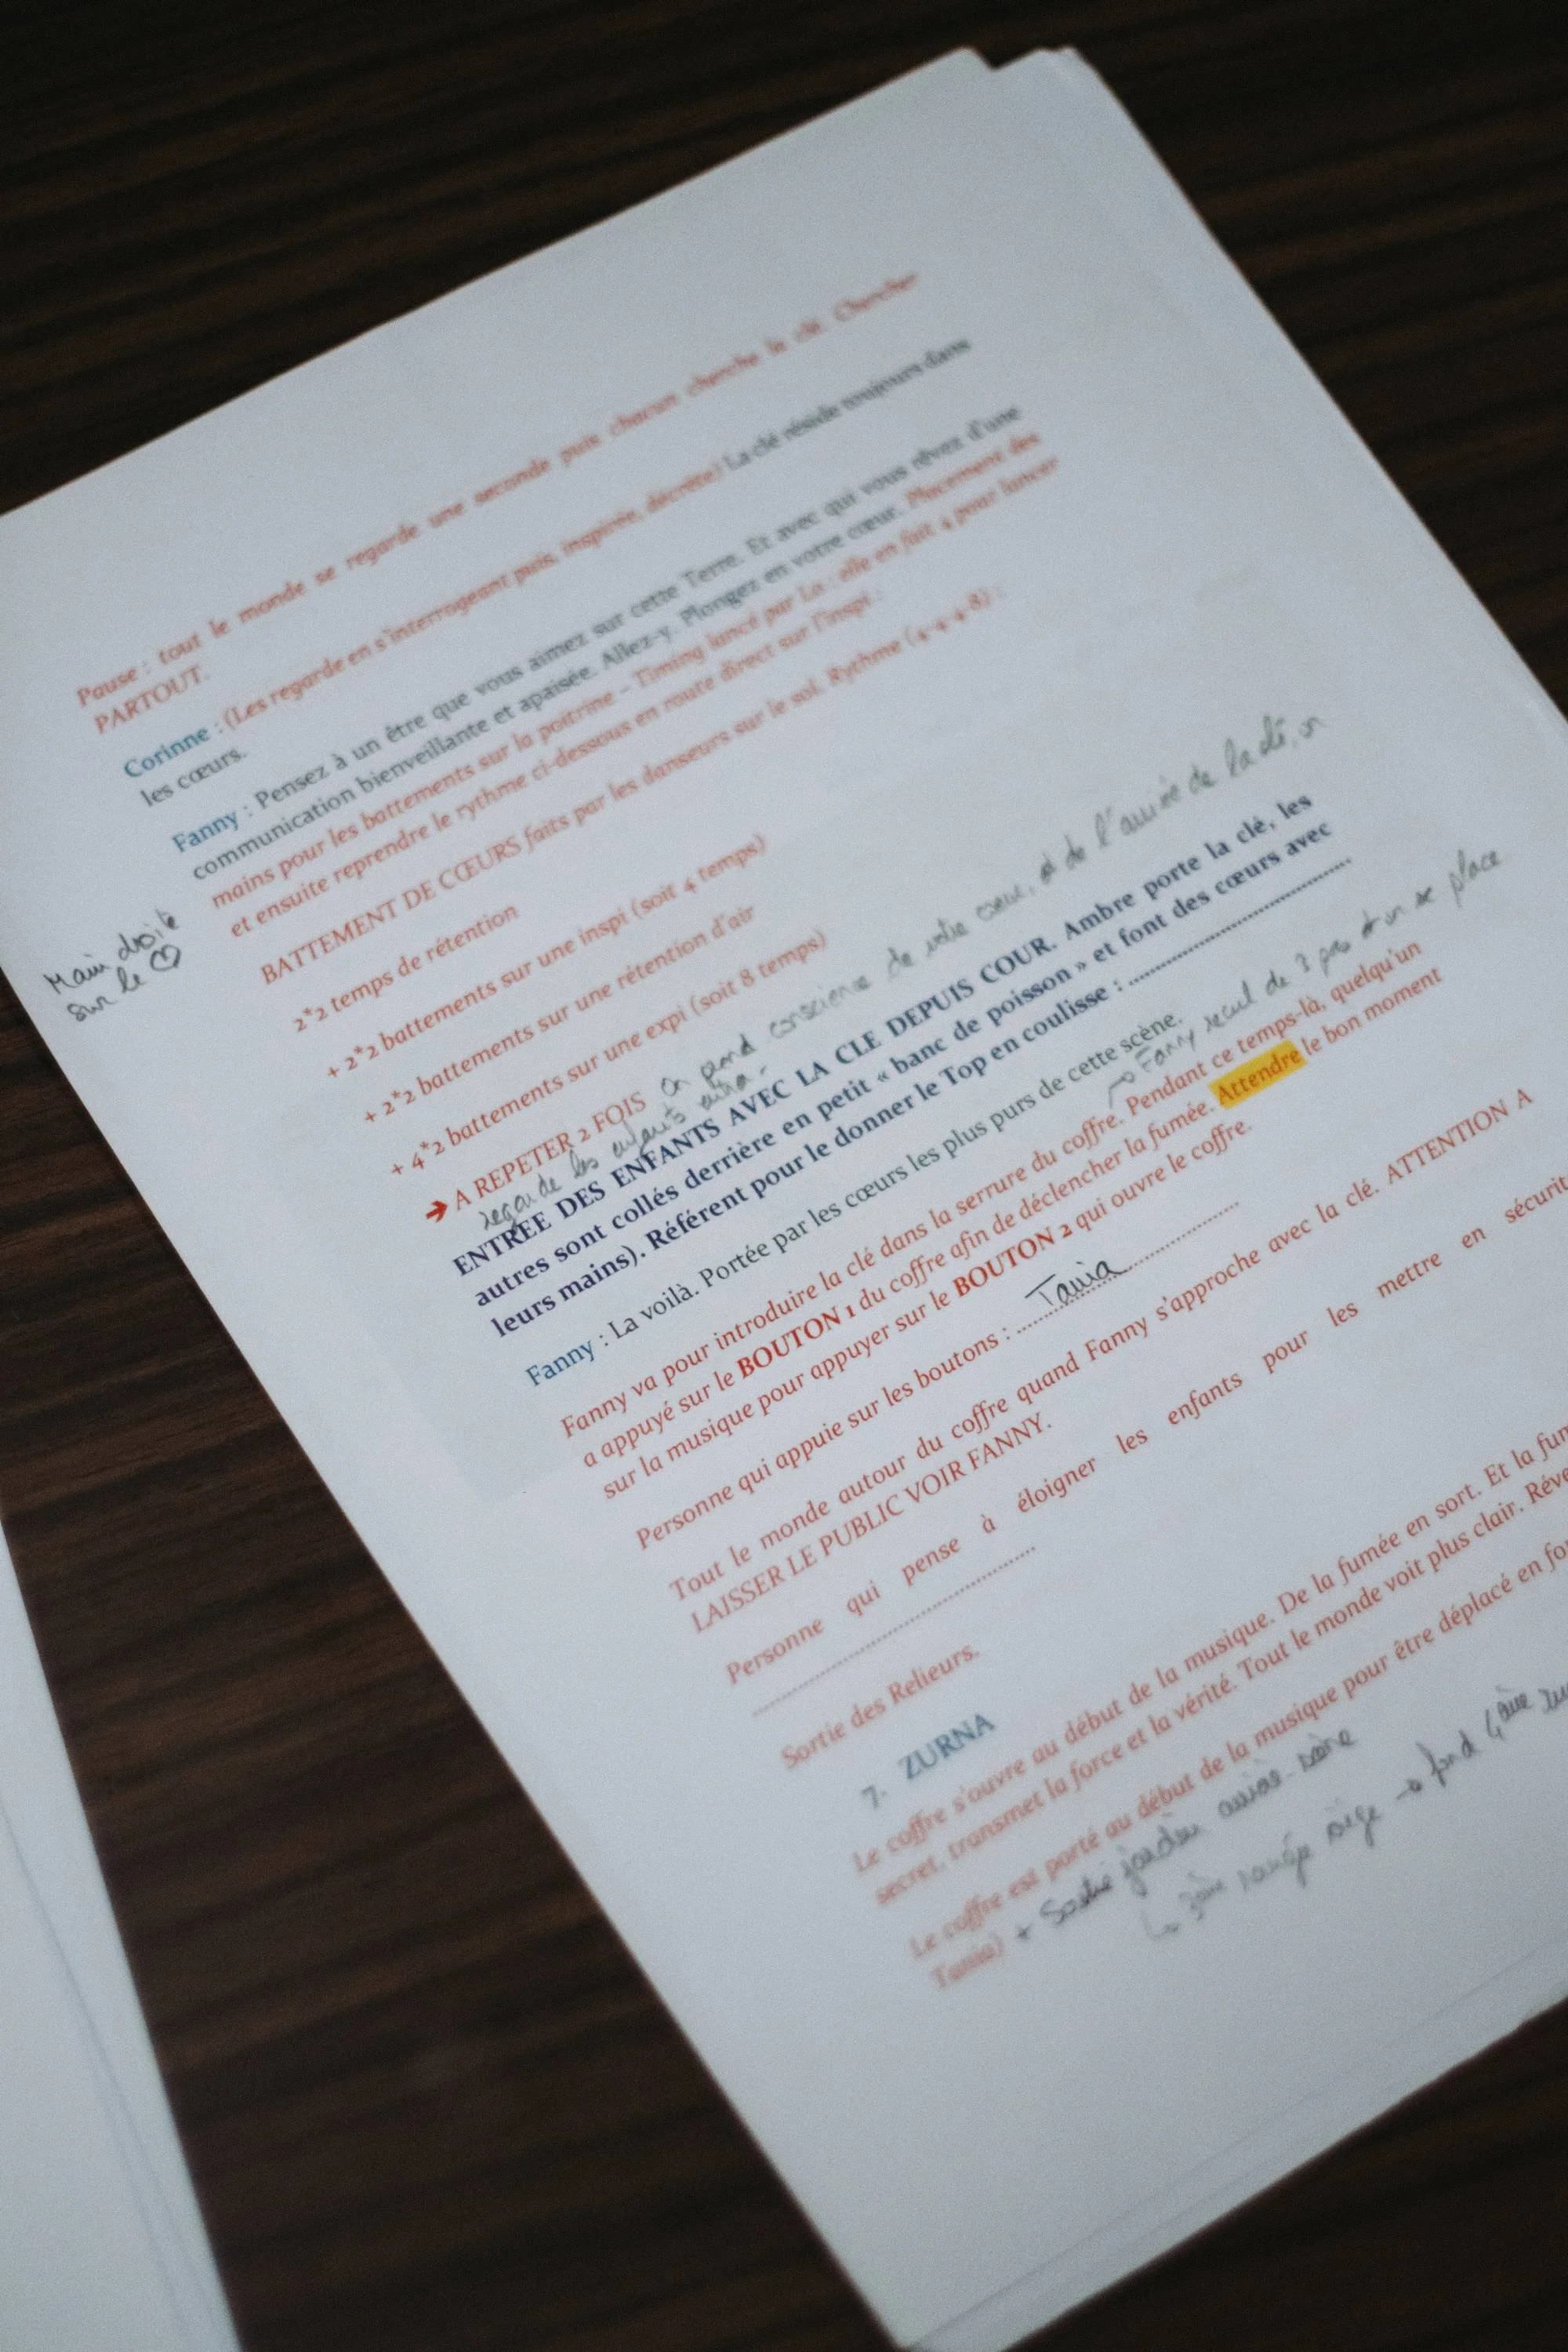 Pause : tout le monde se regarde une seconde puis chacun cherche la clé. Chercher
PARTOUT.
Corinne : (Les regarde en s'interrogeant puis, inspirée, décrète) La clé réside toujours dans
les cœurs.
Fanny : Pensez à un être que vous aimez sur cette Terre. Et avec qui vous rêvez d'une
communication bienveillante et apaisée. Allez-y. Plongez en votre cœur. Placement des
mains pour les battements sur la poitrine - Timing lancé par Lo : elle en fait 4 pour lancer
et ensuite reprendre le rythme ci-dessous en route direct sur l'inspi :
BATTEMENT DE CŒURS faits par les danseurs sur le sol. Rythme (4-4-4-8) :
Main droite
sur le ♡
2*2 temps de rétention
+ 2*2 battements sur une inspi (soit 4 temps)
+ 2*2 battements sur une rétention d'air
+ 4*2 battements sur une expi (soit 8 temps)
→ A REPETER 2 FOIS on prend conscience de votre cœur, et de l'arrivée de la clé, on
regarde les enfants
ENTREE DES ENFANTS AVEC LA CLE DEPUIS COUR. Ambre porte la clé, les
autres sont collés derrière en petit « banc de poisson » et font des cœurs avec
leurs mains). Référent pour le donner le Top en coulisse : ..............................
Fanny : La voilà. Portée par les cœurs les plus purs de cette scène.
→ Fanny recul de 3 pas et on se place
Fanny va pour introduire la clé dans la serrure du coffre. Pendant ce temps-là, quelqu'un
a appuyé sur le BOUTON 1 du coffre afin de déclencher la fumée. Attendre le bon moment
sur la musique pour appuyer sur le BOUTON 2 qui ouvre le coffre.
Personne qui appuie sur les boutons : ........Tania..............
Tout le monde autour du coffre quand Fanny s'approche avec la clé. ATTENTION A
LAISSER LE PUBLIC VOIR FANNY.
Personne qui pense à éloigner les enfants pour les mettre en sécurit
..............................
Sortie des Relieurs.
7. ZURNA
Le coffre s'ouvre au début de la musique. De la fumée en sort. Et la fum
secret, transmet la force et la vérité. Tout le monde voit plus clair. Réve
Le coffre est porté au début de la musique pour être déplacé en fo
Tania) + Sortie jardin arrière-scène
↳ 3ème rangée siège → fond 4ème